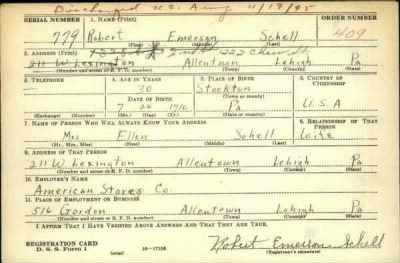 Discharged U.S. Army 11/19/45
SERIAL NUMBER 1. NAME (Print) ORDER NUMBER
779 Robert Emerson Schell 409
(First) (Middle) (Last)
2. ADDRESS (Print) 1222 Chew St
211 W Lexington Allentown Lehigh Pa
(Number and street or R. F. D. number) (Town) (County) (State)
3. TELEPHONE 4. AGE IN YEARS 5. PLACE OF BIRTH 6. COUNTRY OF CITIZENSHIP
30 Stockton
DATE OF BIRTH (Town or county)
7 24 1910 Pa U.S.A
(Exchange) (Number) (Mo.) (Day) (Yr.) (State or country)
7. NAME OF PERSON WHO WILL ALWAYS KNOW YOUR ADDRESS 8. RELATIONSHIP OF THAT PERSON
Mrs Ellen Schell Wife
(Mr., Mrs., Miss) (First) (Middle) (Last)
9. ADDRESS OF THAT PERSON
211 W Lexington Allentown Lehigh Pa
(Number and street or R. F. D. number) (Town) (County) (State)
10. EMPLOYER'S NAME
American Stores Co.
11. PLACE OF EMPLOYMENT OR BUSINESS
516 Gordon Allentown Lehigh Pa
(Number and street or R. F. D. number) (Town) (County) (State)
I AFFIRM THAT I HAVE VERIFIED ABOVE ANSWERS AND THAT THEY ARE TRUE.
REGISTRATION CARD
D. S. S. Form 1 (over) 16-17105 Robert Emerson Schell
(Registrant's signature)